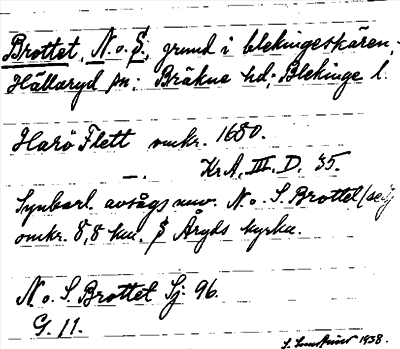 Brottet, N. o. S., grund i blekingeskären,
Hällaryd sn; Bräkne hd; Blekinge l.
Harö Flett omkr. 1680.
—. KrA. III. D. 35.
Synbarl. avsågs nuv. N. o. S. Brottet
omkr. 8,8 km. S Åryds kyrka.
N o. S. Brottet Sj. 96.
G. 11.
1938.